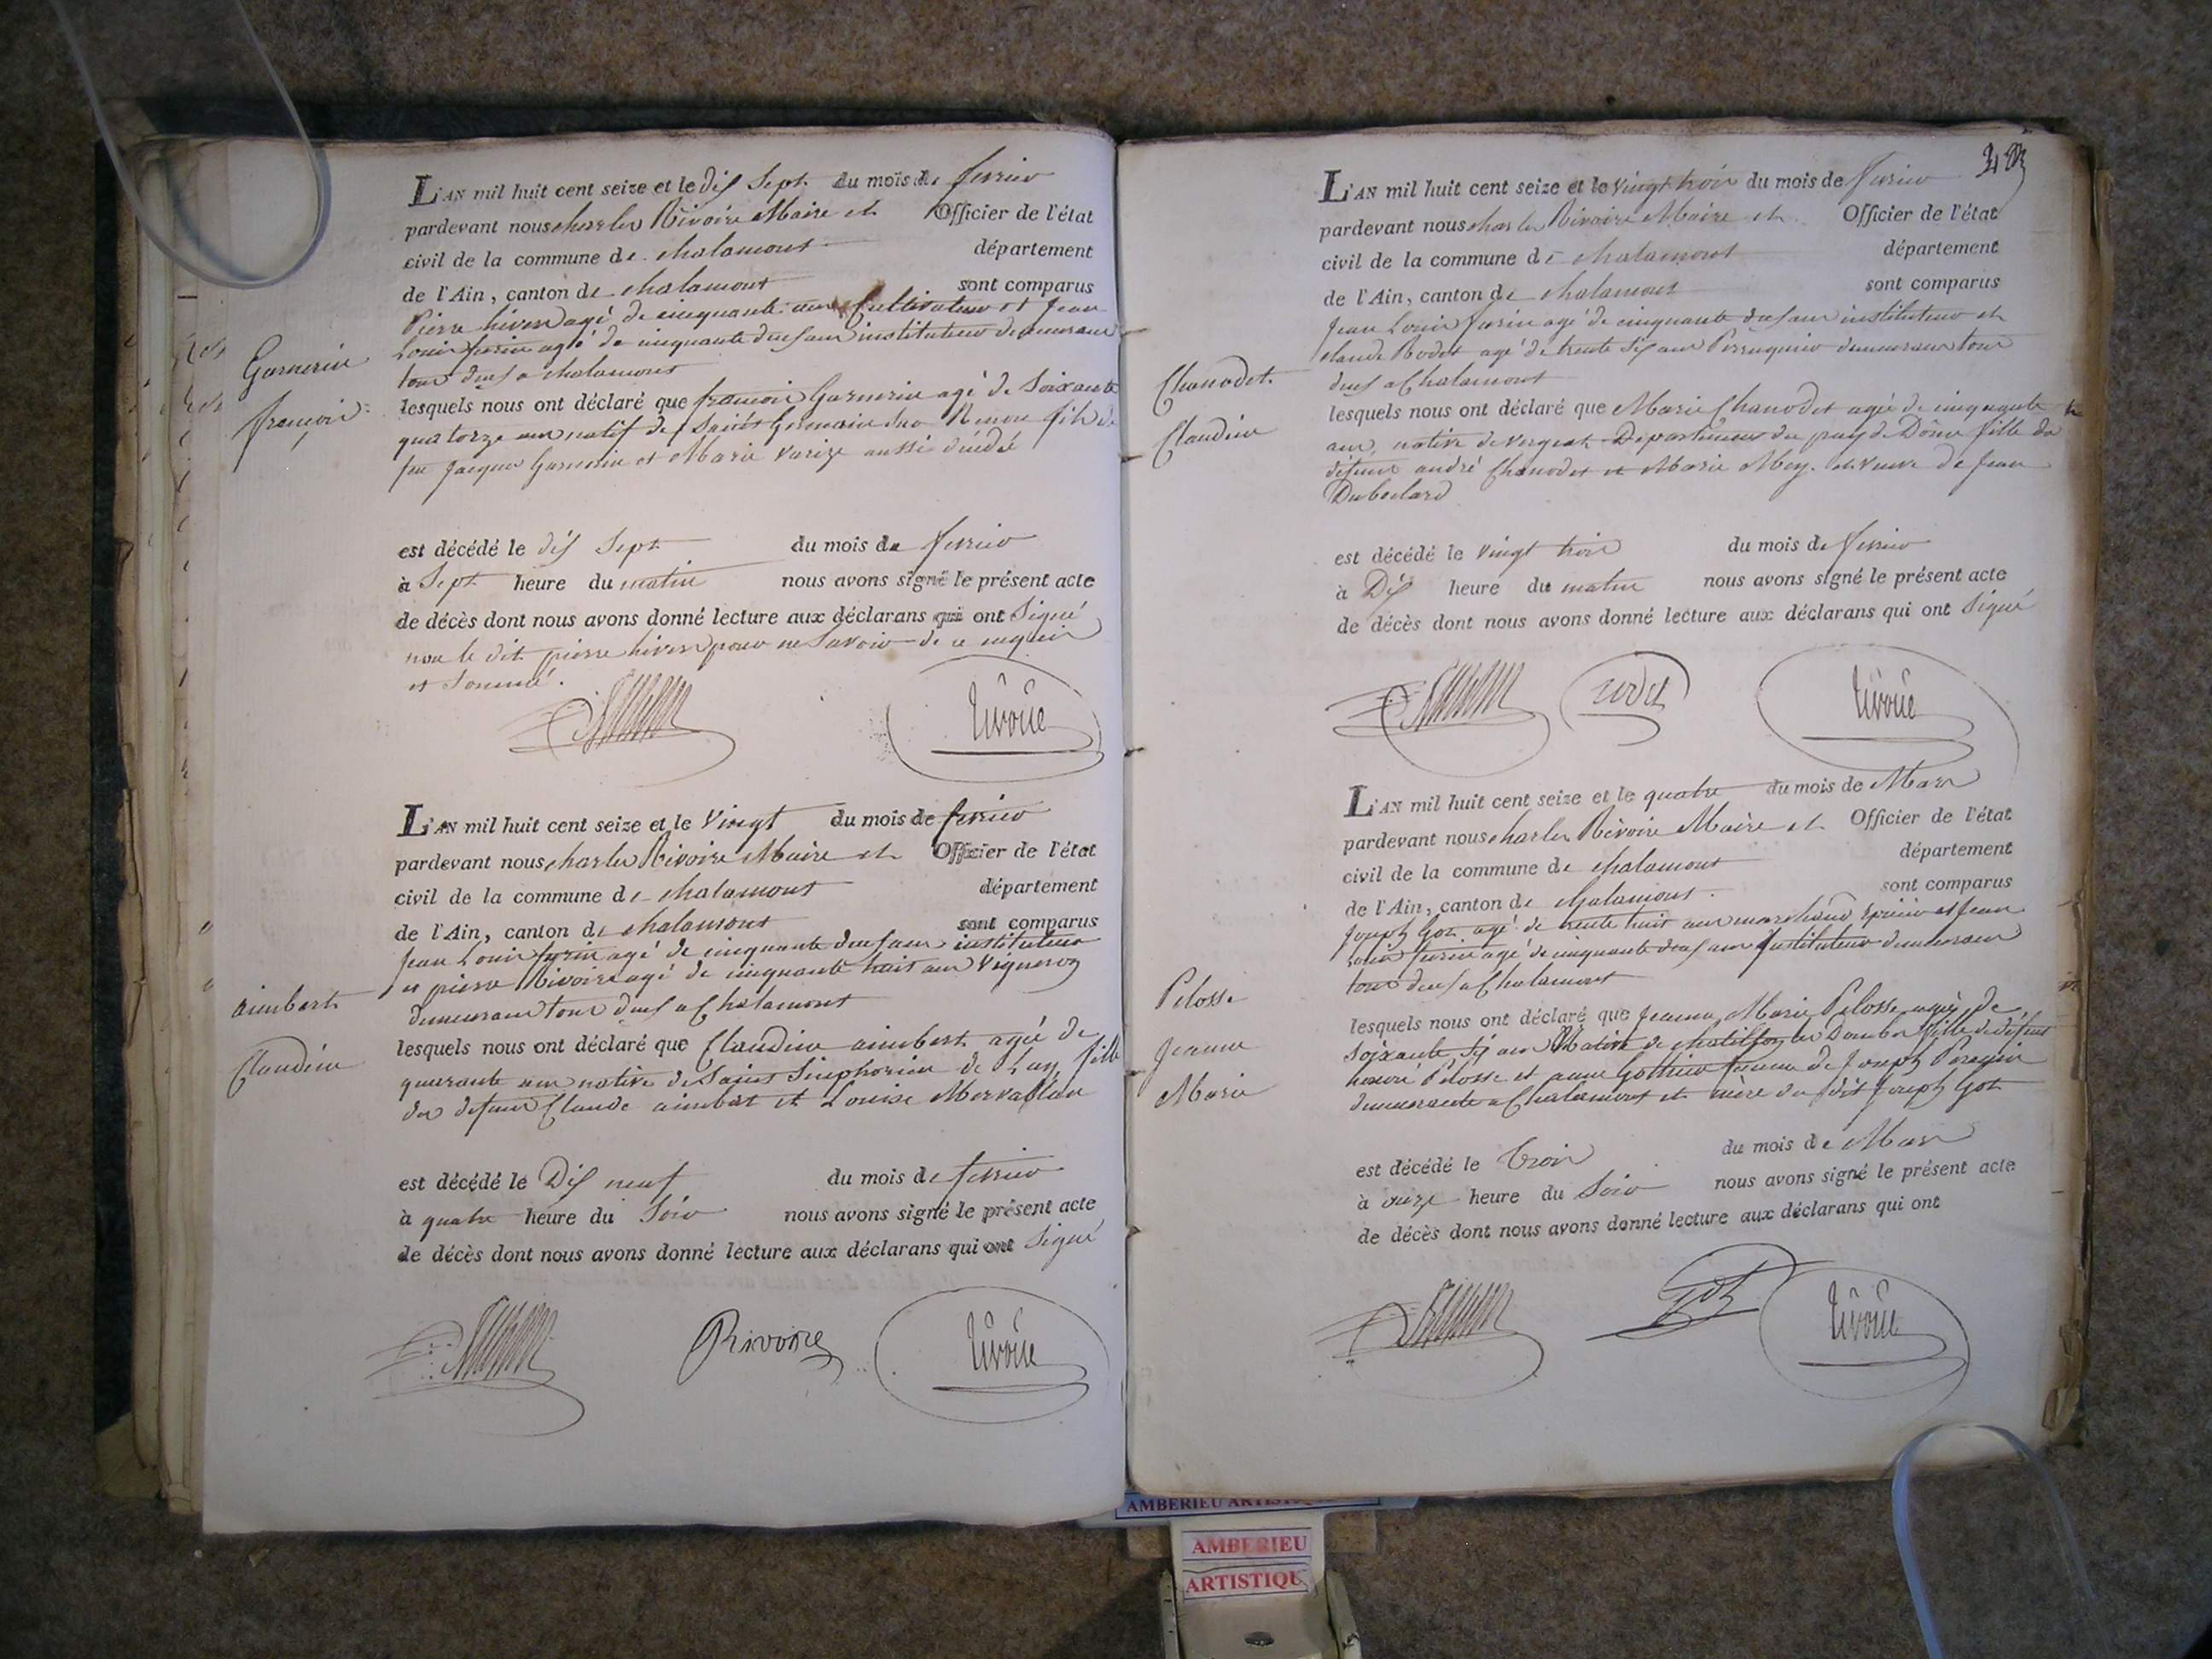 L'AN mil huit cent seize et le dix Sept du mois de fevrier
pardevant nous charles Rivoire Maire et Officier de l'état
civil de la commune de chalamont département
de l'Ain, canton de chalamont sont comparus
Pierre hiver agé de cinquante ans Cultivateur et Jean
Louis agé de cinquante deux ans instituteur demeurans
tous deux a chalamont
Garnerin
françois
lesquels nous ont déclaré que françois Garnerin agé de Soixante
quatorze ans natif de Saint Germain sur Renon fils de
feu Jacques Garnerin et Marie aussi décédé
est décédé le dix Sept du mois de fevrier
à Sept heure du matin nous avons signé le présent acte
de décès dont nous avons donné lecture aux déclarans qui ont Signé
non le dit pierre hiver pour ne Savoir de ce enquis
et Sommé.
Rivoire
L'AN mil huit cent seize et le Vingt du mois de fevrier
pardevant nous charles Rivoire Maire et Officier de l'état
civil de la commune de chalamont département
de l'Ain, canton de chalamont sont comparus
Jean Louis agé de cinquante deux ans instituteur
et pierre Rivoire agé de cinquante huit ans Vigneron
demeurans tous deux a Chalamont
aimbert
Claudine
lesquels nous ont déclaré que Claudine aimbert agée de
quarante ans native de Saint Simphorien de Lay fille
de defunt Claude aimbert et Louise
est décédé le Dix neuf du mois de fevrier
à quatre heure du Soir nous avons signé le présent acte
de décès dont nous avons donné lecture aux déclarans qui ont Signé
Rivoire Rivoire
L'AN mil huit cent seize et le vingt trois du mois de fevrier
pardevant nous charles Rivoire Maire et Officier de l'état
civil de la commune de chalamont département
de l'Ain, canton de chalamont sont comparus
Jean Louis agé de cinquante deux ans instituteur et
claude Rodet agé de trente Six ans Perruquier demeurans tous
deux a Chalamont
Chanodet
Claudine
lesquels nous ont déclaré que Marie Chanodet agée de cinquante
ans, native de Departement du puy de Dôme fille de
défunt andré Chanodet et Marie Mey. et veuve de Jean
Duboclard
est décédé le vingt trois du mois de fevrier
à Dix heure du matin nous avons signé le présent acte
de décès dont nous avons donné lecture aux déclarans qui ont Signé
rodet Rivoire
L'AN mil huit cent seize et le quatre du mois de Mars
pardevant nous charles Rivoire Maire et Officier de l'état
civil de la commune de chalamont département
de l'Ain, canton de chalamont. sont comparus
Joseph Goz agé de trente huit ans marchand épicier et Jean
Louis agé de cinquante deux ans instituteur demeurans
tous deux a Chalamont
Pelosse
Jeanne
Marie
lesquels nous ont déclaré que Jeanne Marie Pelosse agée de
Soixante Six ans Native de chatillon les Dombes fille de défunt
Pelosse et anne femme de Joseph
demeurante a Chalamont et mère du dit Joseph Goz
est décédé le Trois du mois de Mars
à onze heure du Soir nous avons signé le présent acte
de décès dont nous avons donné lecture aux déclarans qui ont
Goz Rivoire
AMBERIEU ARTISTIQUE
AMBERIEU
ARTISTIQU